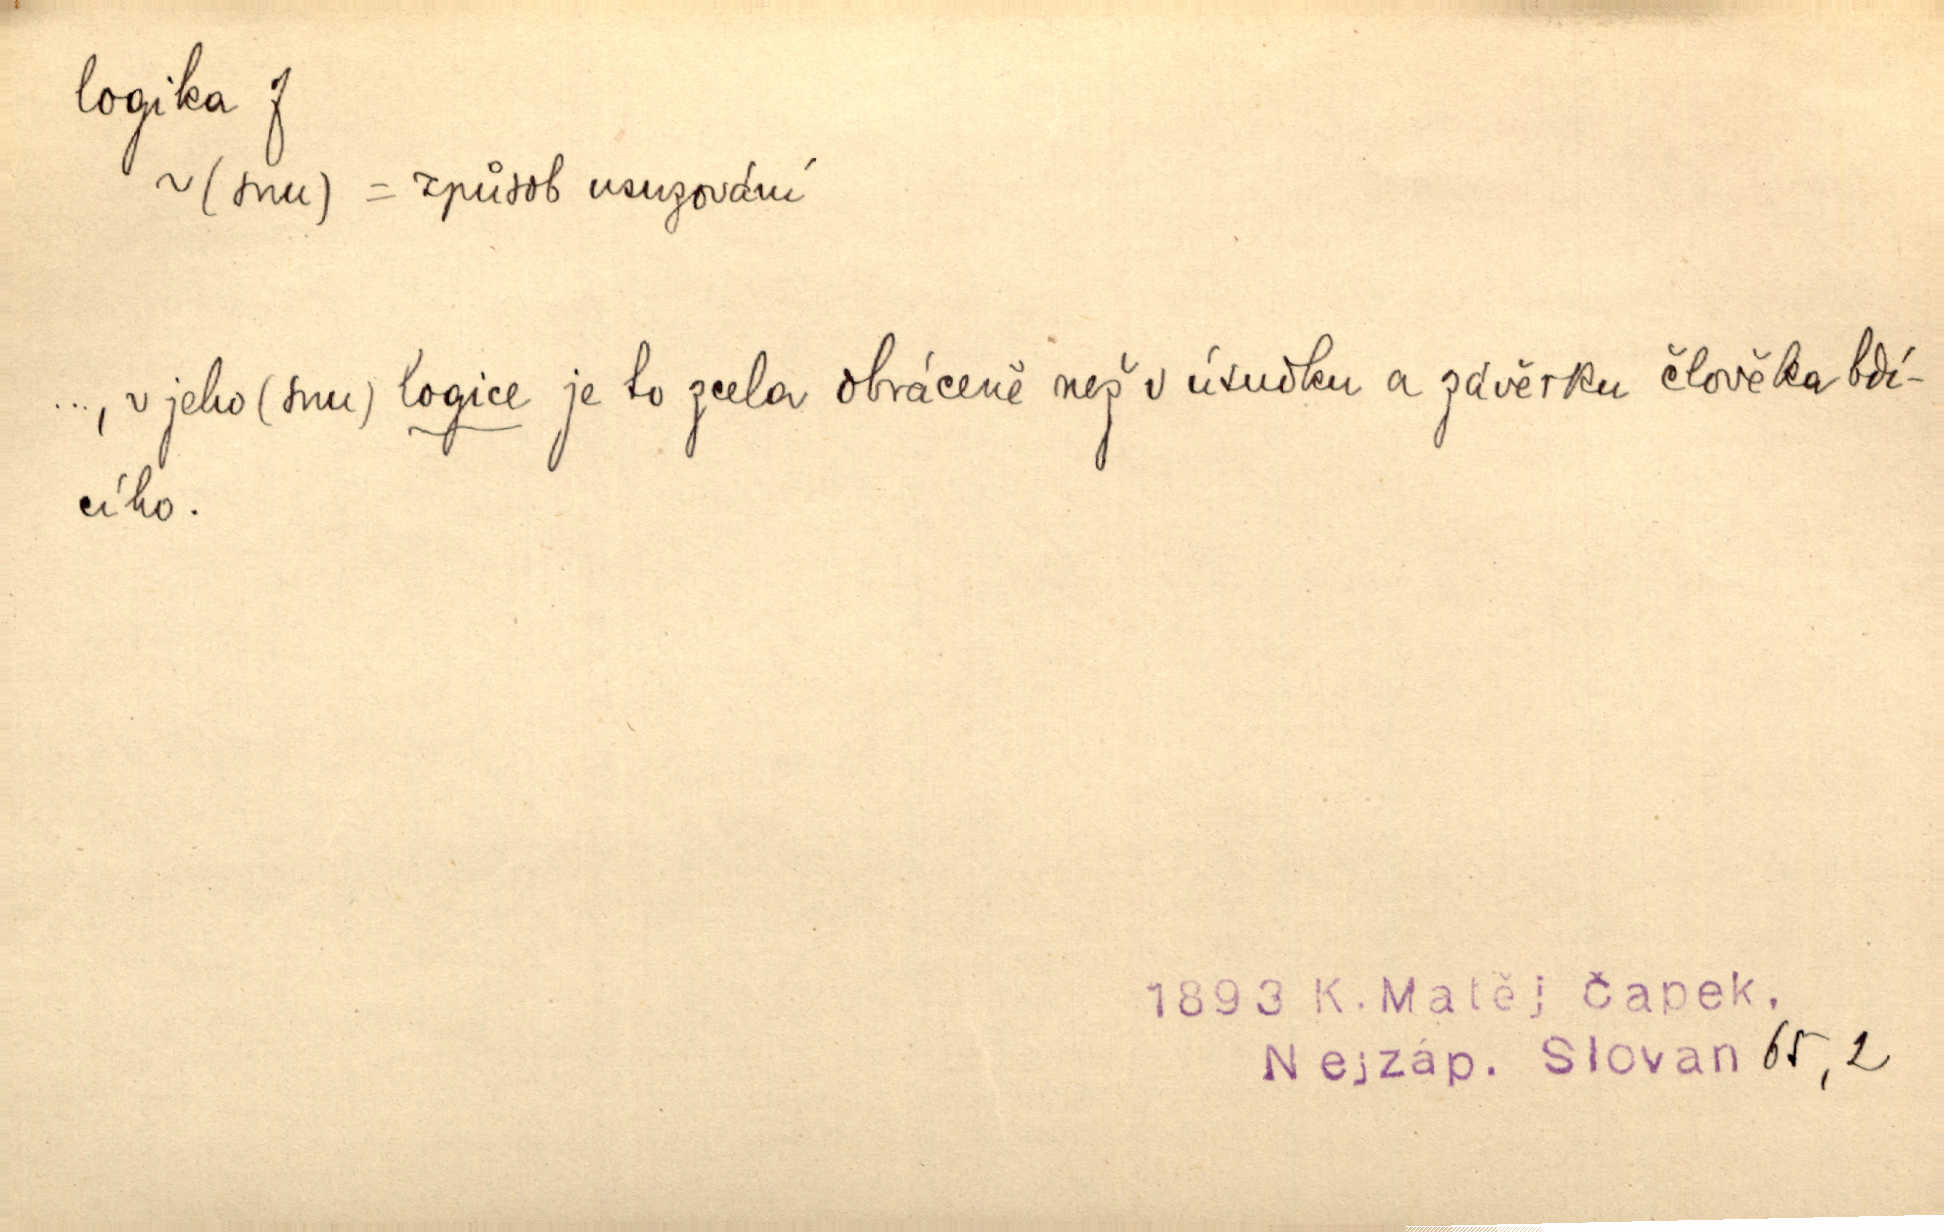 logika f
~ (snu) = způsob usuzování
..., v jeho (snu) logice je to zcela obráceně než v úsudku a závěrku člověka bdí-
cího.
1893 K. Matěj Čapek,
Nejzáp. Slovan 65,2